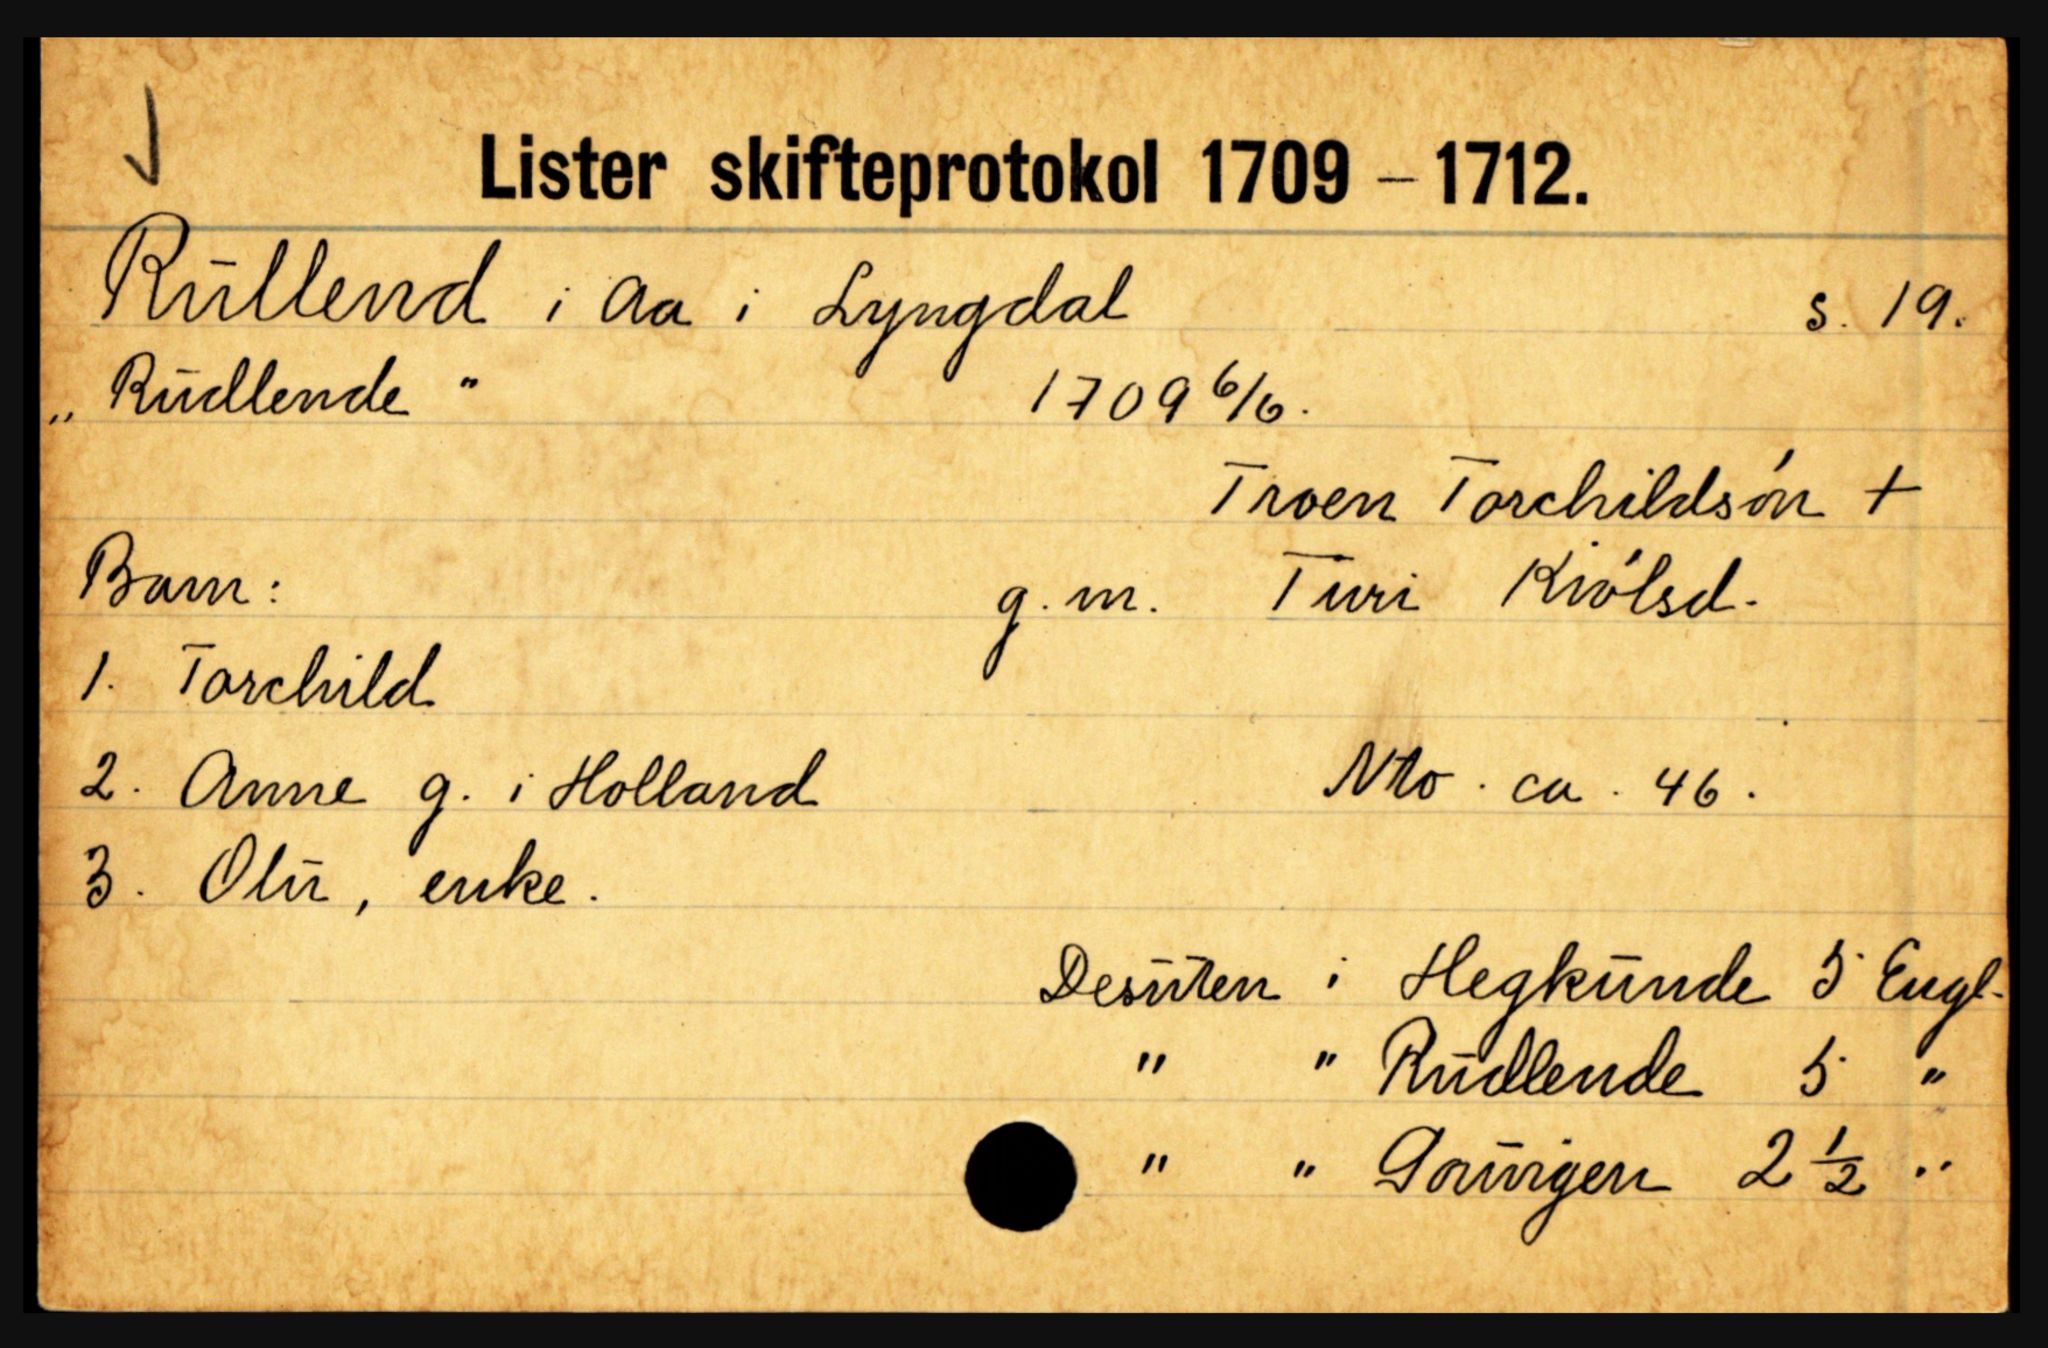 Lister skifteprotokol 1709 – 1712.
Rūllend i Aa i Lyngdal s. 19.
„ Rūdlende " 1709 6/6.
Troen Torchildsón +
Barn: g. m. Turi Kiólsd.
1. Torchild
2. Anne g. i Holland Nto. ca. 46.
3. Olū, enke.
Desūten i Hegkūnde 5 Engl.
" " Rūdlende 5 "
" " 2 1/2 "